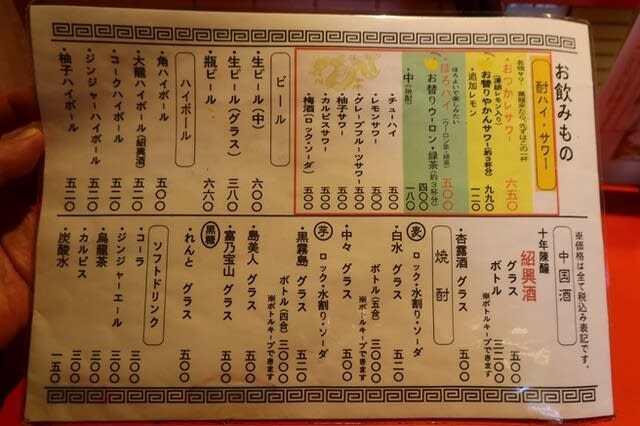 お飲みもの
酎ハイ・サワー
名物サワー 萬龍来たら、先ずはこの一杯
・おつかレサワー 六五〇
(凍結レモン入り)
お替りやかんサワー(約3杯分) 九九〇
・追加レモン 一二〇
ほろよいで楽しみたい
・ほろハイ(ウーロン茶・緑茶) 五〇〇
お替りウーロン・緑茶(約3杯分) 四〇〇
・中(焼酎) 一八〇
・チューハイ 五〇〇
・レモンサワー 五〇〇
・グレープフルーツサワー 五〇〇
・柚子サワー 五〇〇
・カルピスサワー 五〇〇
・梅酒(ロック・ソーダ) 五〇〇
ビール
・生ビール(中) 六〇〇
・生ビール(グラス) 三八〇
・瓶ビール 六六〇
ハイボール
・角ハイボール 五〇〇
・大龍ハイボール(紹興酒) 五二〇
・コークハイボール 五二〇
・ジンジャーハイボール 五二〇
・柚子ハイボール 五二〇
※価格は全て税込み表記です。
中国酒
十年陳醸
紹興酒
グラス 五〇〇
ボトル 三二〇〇
※ボトルキープできます
・杏露酒 グラス 五〇〇
焼酎
麦 ロック・水割り・ソーダ
・白水 グラス 五二〇
ボトル(五合) 三〇〇〇
※ボトルキープできます
・中々 グラス 五〇〇
芋 ロック・水割り・ソーダ
・黒霧島 グラス 五二〇
ボトル(四合) 三〇〇〇
※ボトルキープできます
・島美人 グラス 五〇〇
・富乃宝山 グラス 五〇〇
黒糖
・れんと グラス 五〇〇
ソフトドリンク
・コーラ 三〇〇
・ジンジャーエール 三〇〇
・烏龍茶 三〇〇
・カルピス 三〇〇
・炭酸水 一五〇